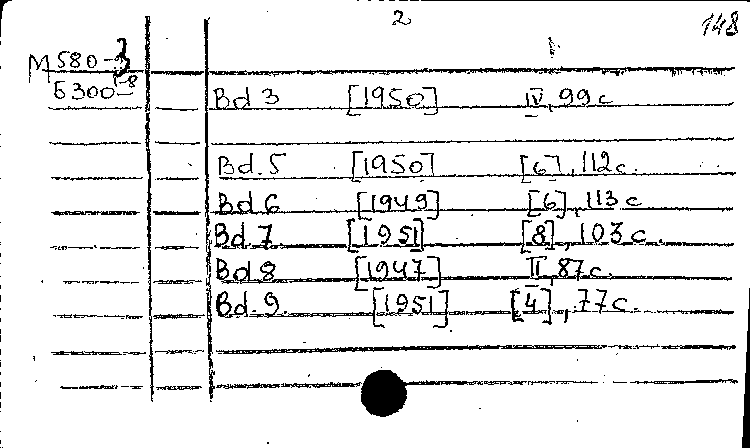 2 148
М580-3
Б300-8
Bd 3 [1950] IV, 99 с
Bd. 5 [1950] [6], 112с.
Bd. 6 [1949] [6], 113 с
Bd. 7 [1951] [8], 103 с.
Bd 8 [1947] II, 87с.
Bd. 9. [1951] [4], 77с.